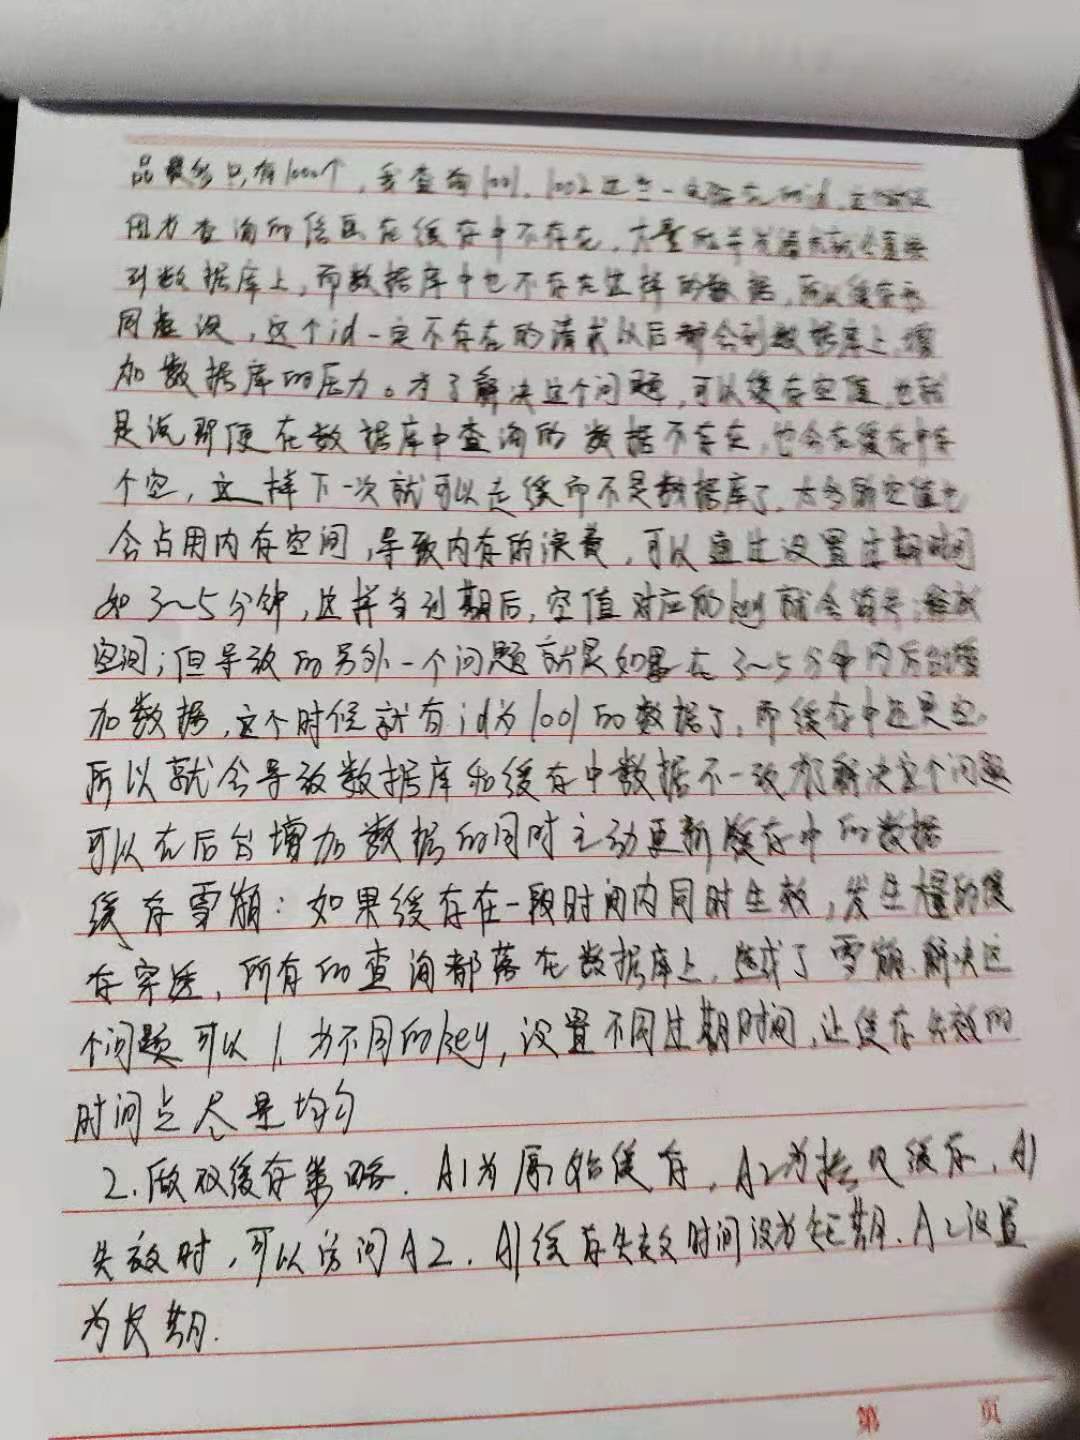 品最多只有1000个，我查询1001、1002这些一定不存在的id，
因为查询的信息在缓存中不存在，大量的并发请求就会直接
到数据库上，而数据库中也不存在这样的数据，所以缓存形
同虚设，这个id一定不存在的请求以后都会到数据库上，增
加数据库的压力。为了解决这个问题，可以缓存空值，也就
是说即便在数据库中查询的数据不存在，也会在缓存中存
个空，这样下一次就可以走缓而不是数据库了，太多的空值也
会占用内存空间，导致内存的浪费，可以通过设置过期时间
如3~5分钟，这样当到期后，空值对应的key就会消失，释放
空间；但导致的另外一个问题就是如果在3~5分钟内后台增
加数据，这个时候就有id为1001的数据了，而缓存中还是空，
所以就会导致数据库和缓存中数据不一致，为解决这个问题
可以在后台增加数据的同时主动更新缓存中的数据
缓存雪崩：如果缓存在一段时间内同时失效，发生大量的缓
存穿透，所有的查询都落在数据库上，造成了雪崩.解决这
个问题可以1.为不同的key，设置不同过期时间，让缓存失效的
时间点尽量均匀
2.做双缓存策略.A1为原始缓存，A2为拷贝缓存，A1
失效时，可以访问A2，A1缓存失效时间设为短期.A2设置
为长期.
第 页